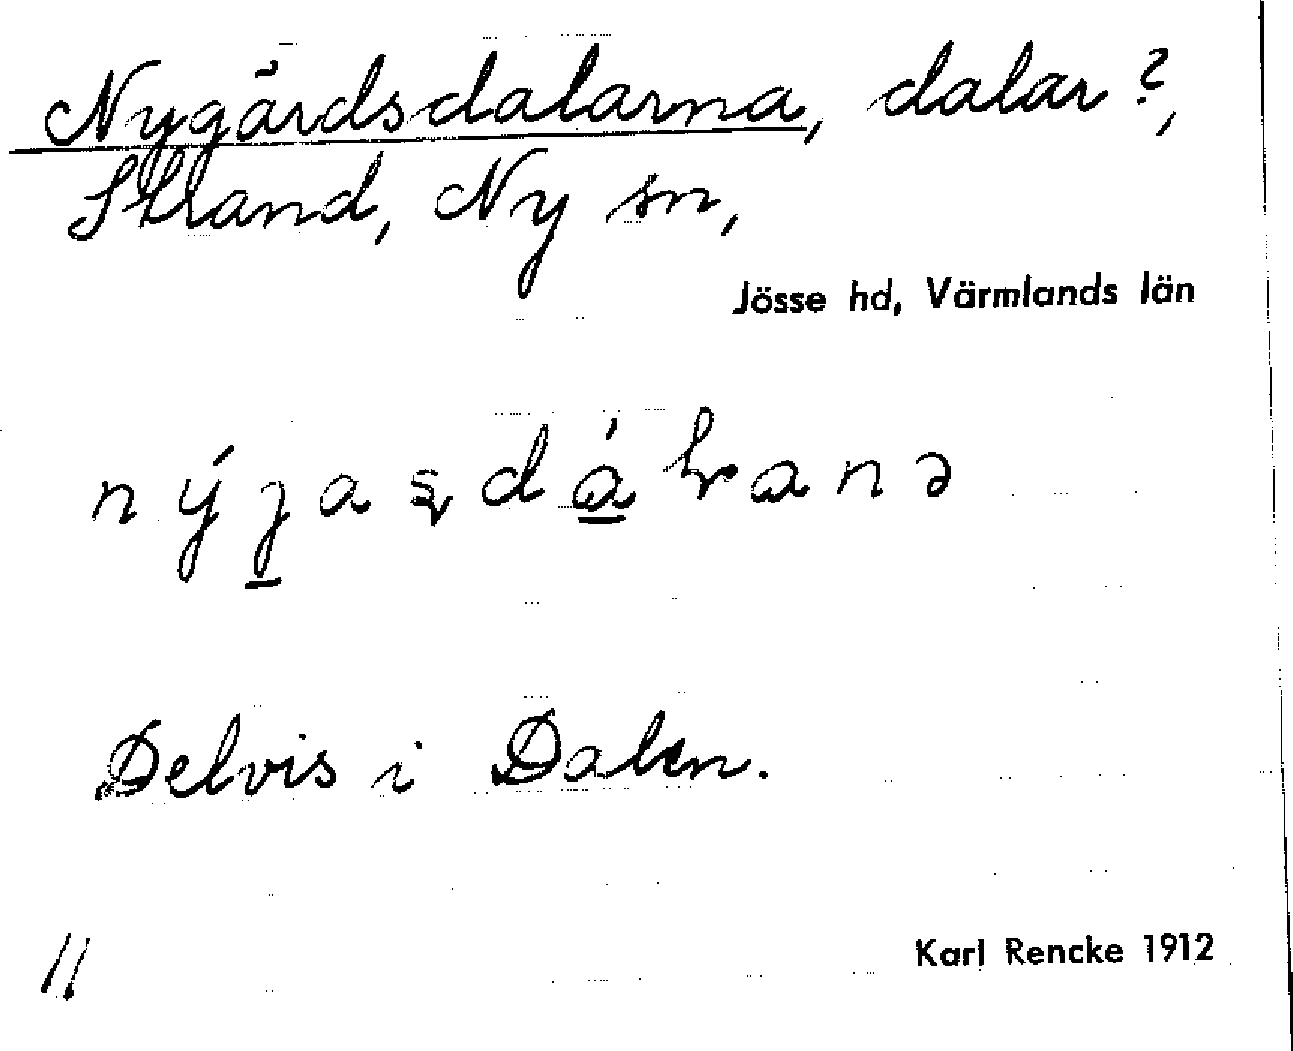 Nygårdsdalarna, dalar?,
Strand, Ny sn,
Jösse hd, Värmlands län
Delvis i Dalen.
11
Karl Rencke 1912